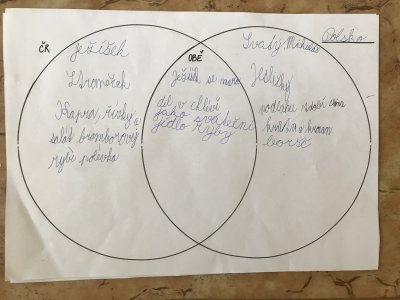 ČR
Ježíšek
Stromeček
Kapra, řízky a
salát bramborový
rybí polévka
OBĚ
Ježíšek se naro
dil v chlévě
jako sváteční
jídlo ryby
Polsko
Svatý Mikuláš
Jesličky
podlahu zdobí
boršč